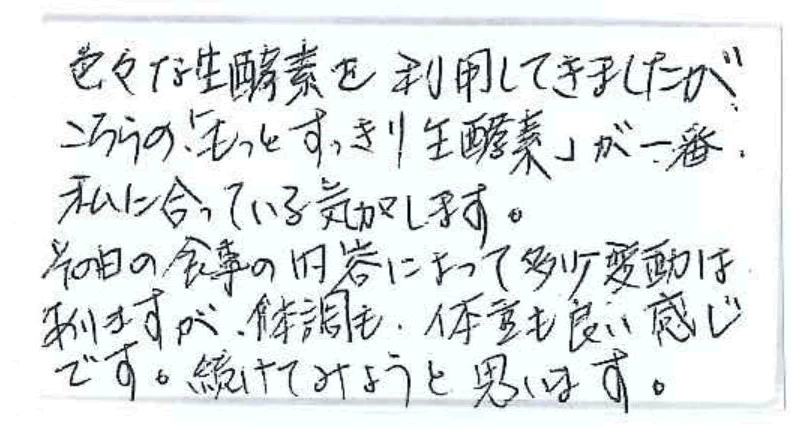 色々な生酵素を利用してきましたが
こちらの「もっとすっきり生酵素」が一番
私に合っている気がします。
その日の食事の内容によって多少変動は
ありますが、体調も、体重も良い感じ
です。続けてみようと思います。